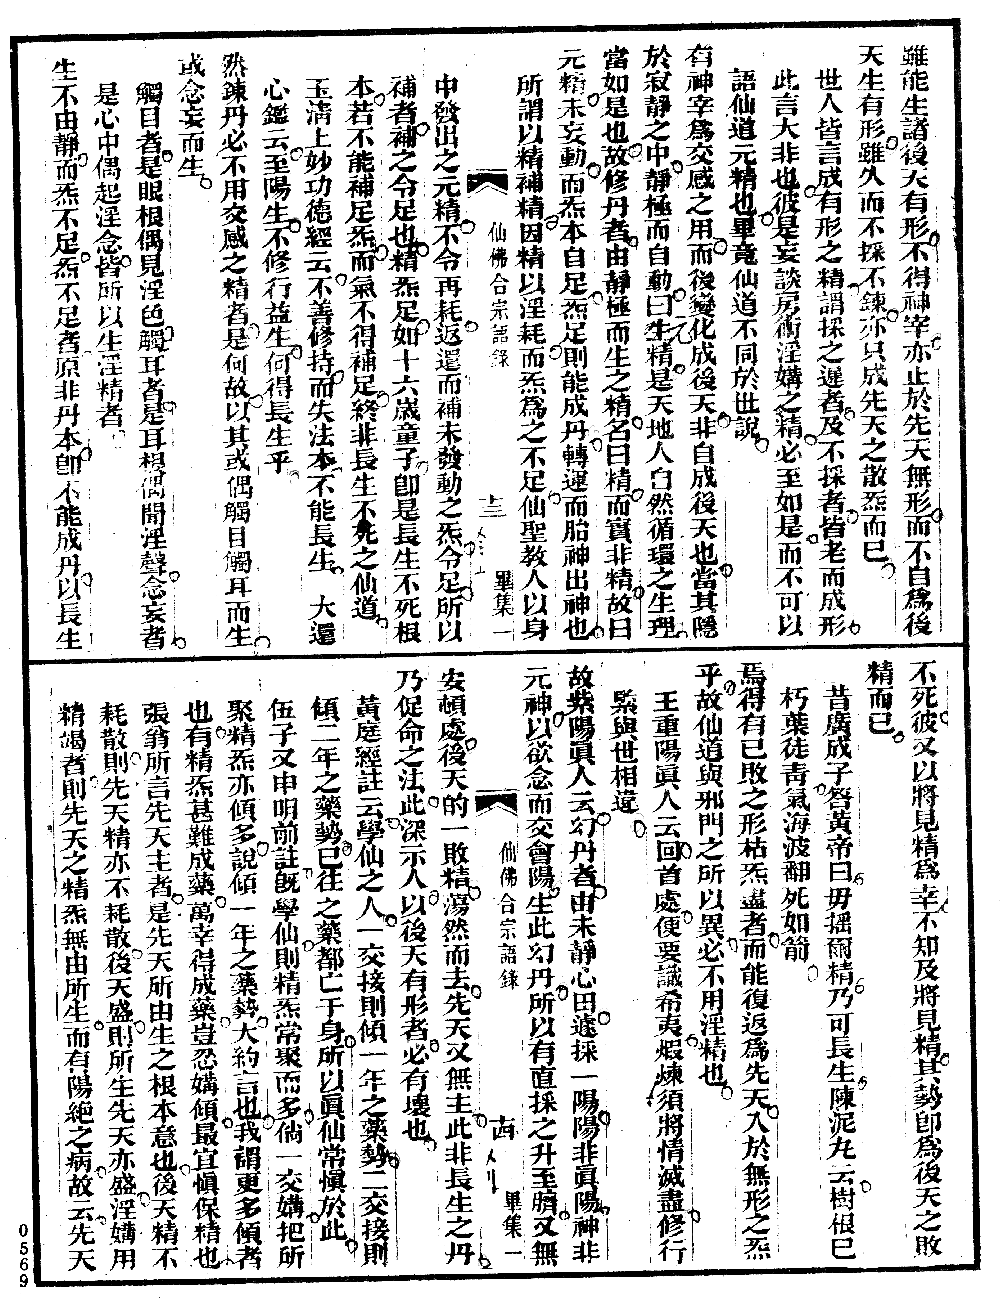 雖能生諸後天有形不得神宰亦止於先天無形而不自爲後
天生有形雖久而不採不鍊亦只成先天之散炁而已
世人皆言成有形之精謂採之遲者及不採者皆老而成形
此言大非也彼是妄談房術淫媾之精必至如是而不可以
語仙道元精也畢竟仙道不同於世說
有神宰爲交感之用而後變化成後天非自成後天也當其隱
於寂靜之中靜極而自動曰生元精是天地人自然循環之生理
當如是也故修丹者由靜極而生之精名曰精而實非精故曰
元精未妄動而炁本自足炁足則能成丹轉運而胎神出神也
所謂以精補精因精以淫耗而炁爲之不足仙聖教人以身
仙佛合宗語錄
畢集一
中發出之元精不令再耗返還而補未發動之炁令足所以
補者補之令足也精炁足如十六歲童子卽是長生不死根
本若不能補足炁而氣不得補足終非長生不死之仙道
玉淸上妙功德經云不善修持而失法本不能長生 大還
心鑑云至陽生不修行益生何得長生乎
然鍊丹必不用交感之精者是何故以其或偶觸目觸耳而生
或念妄而生
觸目者是眼根偶見淫色觸耳者是耳根偶聞淫聲念妄者
是心中偶起淫念皆所以生淫精者
生不由靜而炁不足炁不足者原非丹本卽不能成丹以長生
不死彼又以將見精爲幸不知及將見精其勢卽爲後天之敗
精而已
昔廣成子答黃帝曰毋搖爾精乃可長生陳泥丸云樹根已
朽葉徒靑氣海波翻死如箭
焉得有已敗之形枯炁盡者而能復返爲先天入於無形之炁
乎故仙道與邪門之所以異必不用淫精也
王重陽眞人云回首處便要識希夷煅煉須將情滅盡修行
緊與世相違
故紫陽眞人云幻丹者由未靜心田遽採一陽陽非眞陽神非
元神以欲念而交會陽生此幻丹所以有直採之升至臍又無
仙佛合宗語錄
畢集一
安頓處後天的一敗精蕩然而去先天又無主此非長生之丹
乃促命之法此深示人以後天有形者必有壞也
黃庭經註云學仙之人一交接則傾一年之藥勢二交接則
傾二年之藥勢已往之藥都亡于身所以眞仙常愼於此
伍子又申明前註旣學仙則精炁常聚而多倘一交媾把所
聚精炁亦傾多說傾一年之藥勢大約言也我謂更多傾者
也有精炁甚難成藥萬幸得成藥豈忍媾傾最宜愼保精也
張翁所言先天主者是先天所由生之根本意也後天精不
耗散則先天精亦不耗散後天盛則所生先天亦盛淫媾用
精竭者則先天之精炁無由所生而有陽絶之病故云先天
0569